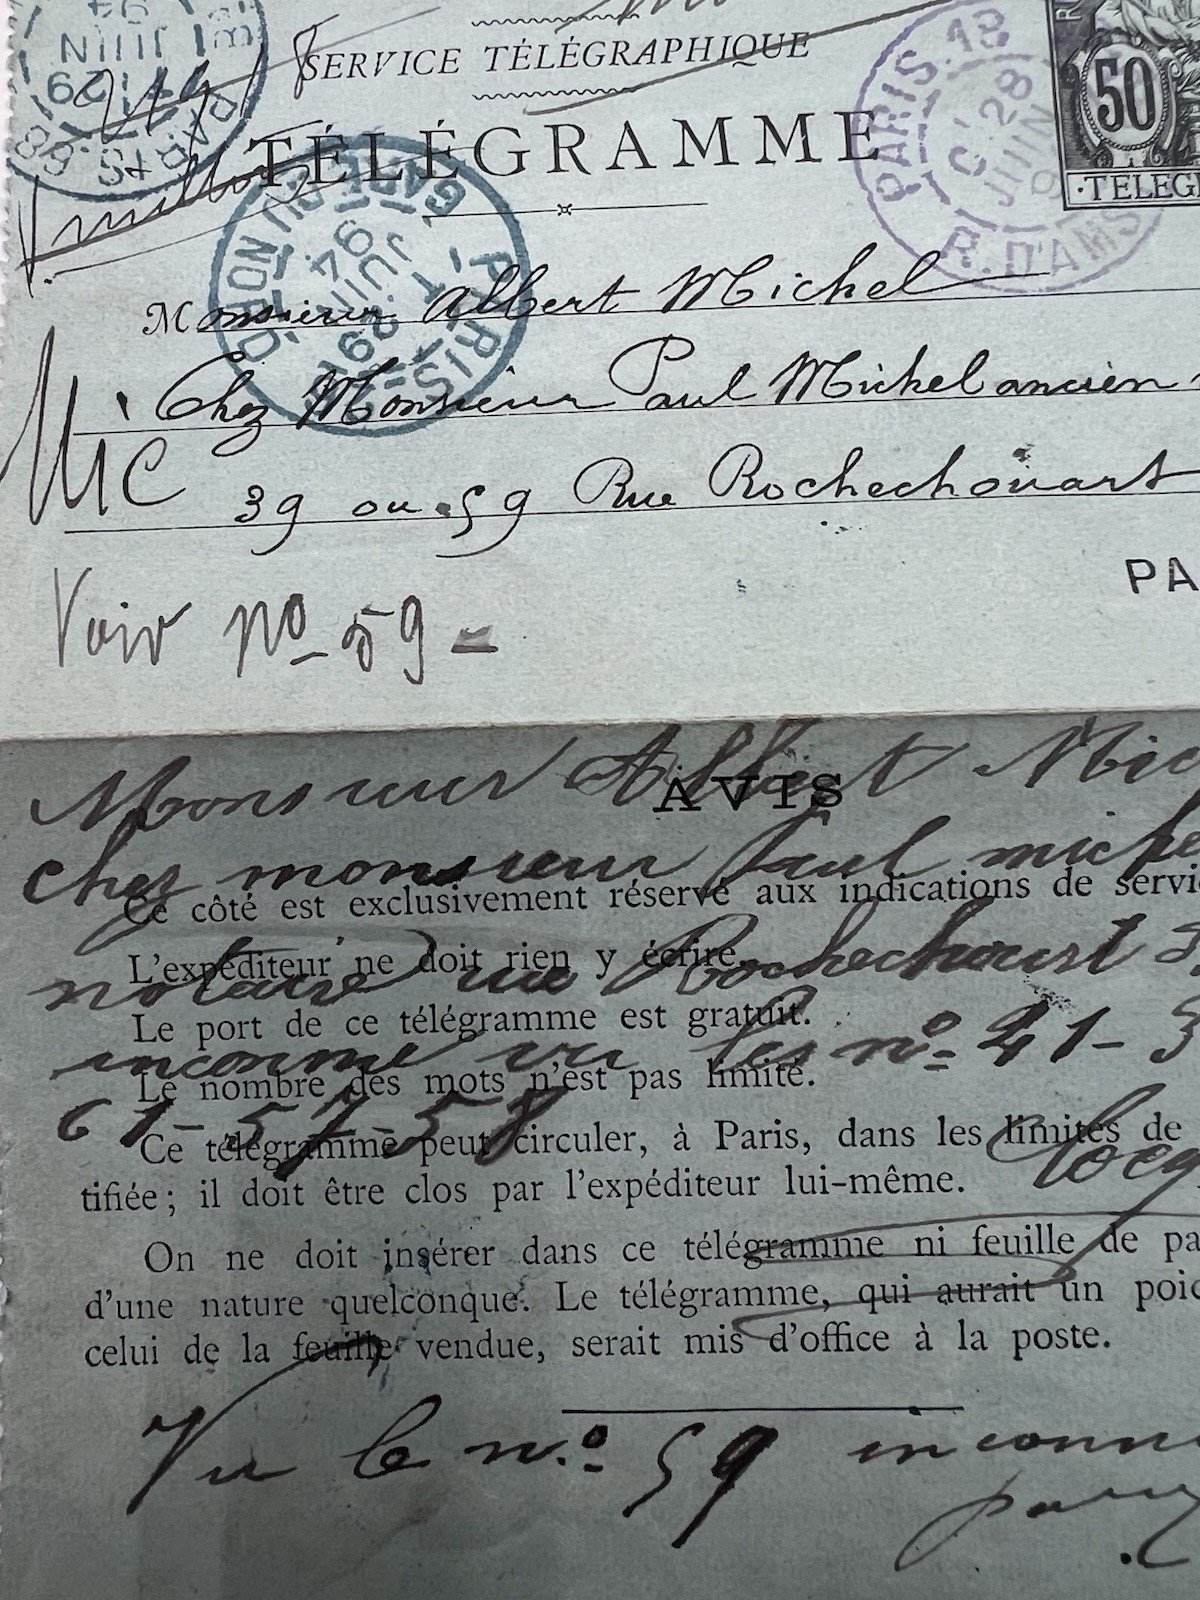 SERVICE TÉLÉGRAPHIQUE
TÉLÉGRAMME
PARIS
JUIN
29
PARIS 18
28
JUIN
R. D'AMS
50
TELEG
PARIS
GARE DU NORD
29
JUIN
94
Monsieur Albert Michel
Chez Monsieur Paul Michel ancien
39 ou 59 Rue Rochechouart
PA
Voir No 59
Monsieur Albert Mic
AVIS
chez monsieur Paul miche
Ce côté est exclusivement réservé aux indications de servi
L'expéditeur ne doit rien y écrire.
notaire rue Rochechouart
Le port de ce télégramme est gratuit.
inconnu vu les no 41-3
Le nombre des mots n'est pas limité.
61-57-58
Ce télégramme peut circuler, à Paris, dans les limites de
tifiée; il doit être clos par l'expéditeur lui-même.
On ne doit insérer dans ce télégramme ni feuille de pa
d'une nature quelconque. Le télégramme, qui aurait un poi
celui de la feuille vendue, serait mis d'office à la poste.
Vu le no 59 inconnu